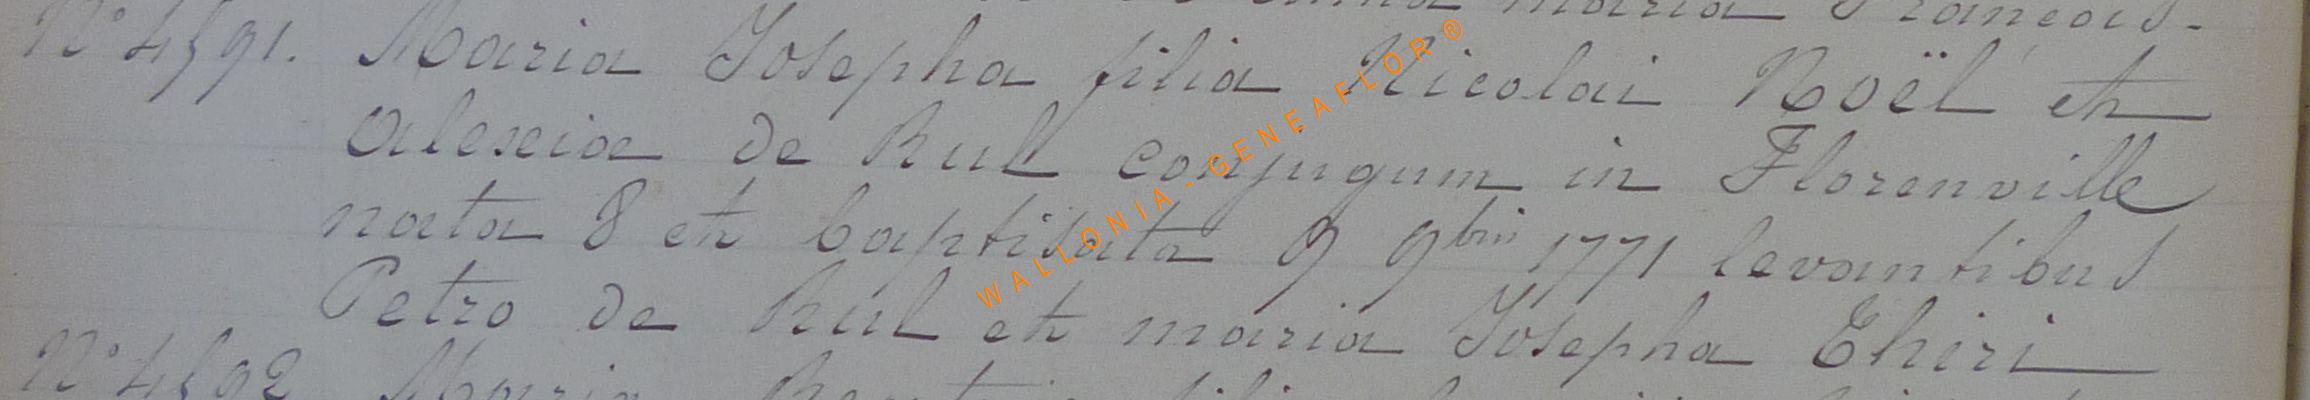 maria Francois.
N° 4591. Maria Josepha filia Nicolai Noël et
Alexia de Rull conjugum in Florenville
nata 8 et baptisata 9 9bris 1771 levantibus
Petro de Rul et maria Josepha Thiri
N° 4592 Maria
WALLONIA - GENEAFLOR ®